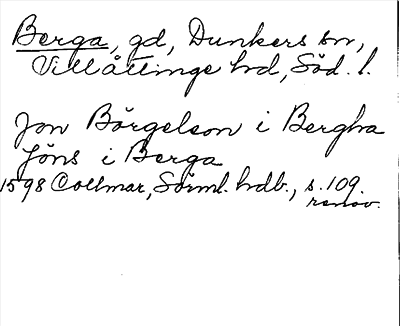 Berga, gd, Dunkers sn,
Villåttinge hd, Söd. l.
Jon Börgelson i Bergha
Jöns i Berga
1598 Collmar, Sörml. hdb., s. 109.
renov.